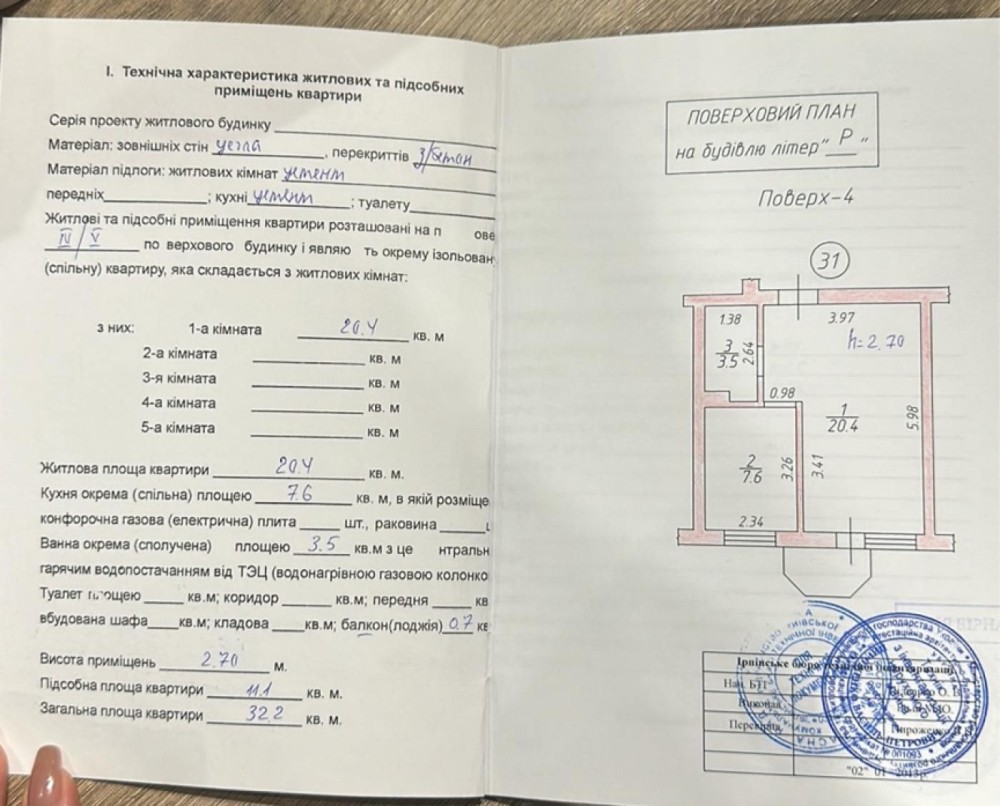 I. Технічна характеристика житлових та підсобних
приміщень квартири
Серія проекту житлового будинку
Матеріал: зовнішніх стін цегла, перекриттів з/бетон
Матеріал підлоги: житлових кімнат цемент
передніх; кухні цемент; туалету
Житлові та підсобні приміщення квартири розташовані на п ове
IV/V по верхового будинку і являю ть окрему ізольован
(спільну) квартиру, яка складається з житлових кімнат:
з них: 1-а кімната 20.4 кв. м
2-а кімната кв. м
3-я кімната кв. м
4-а кімната кв. м
5-а кімната кв. м
Житлова площа квартири 20.4 кв. м.
Кухня окрема (спільна) площею 7.6 кв. м, в якій розміще
конфорочна газова (електрична) плита шт., раковина
Ванна окрема (сполучена) площею 3.5 кв.м з це нтральн
гарячим водопостачанням від ТЭЦ (водонагрівною газовою колонко
Туалет площею кв.м; коридор кв.м; передня кв
вбудована шафа кв.м; кладова кв.м; балкон(лоджія) 0.7 кв
Висота приміщень 2.70 м.
Підсобна площа квартири 11.1 кв. м.
Загальна площа квартири 32.2 кв. м.
ПОВЕРХОВИЙ ПЛАН
на будівлю літер " Р "
Поверх-4
31
1.38
3.97
h=2.70
3
3.5
2.64
0.98
1
20.4
5.98
2
7.6
3.26
3.41
2.34
Ірпінське бюро технічної інвентаризації
Нач. БТІ
Виконав
Перевірив
"02" 01 2013р.